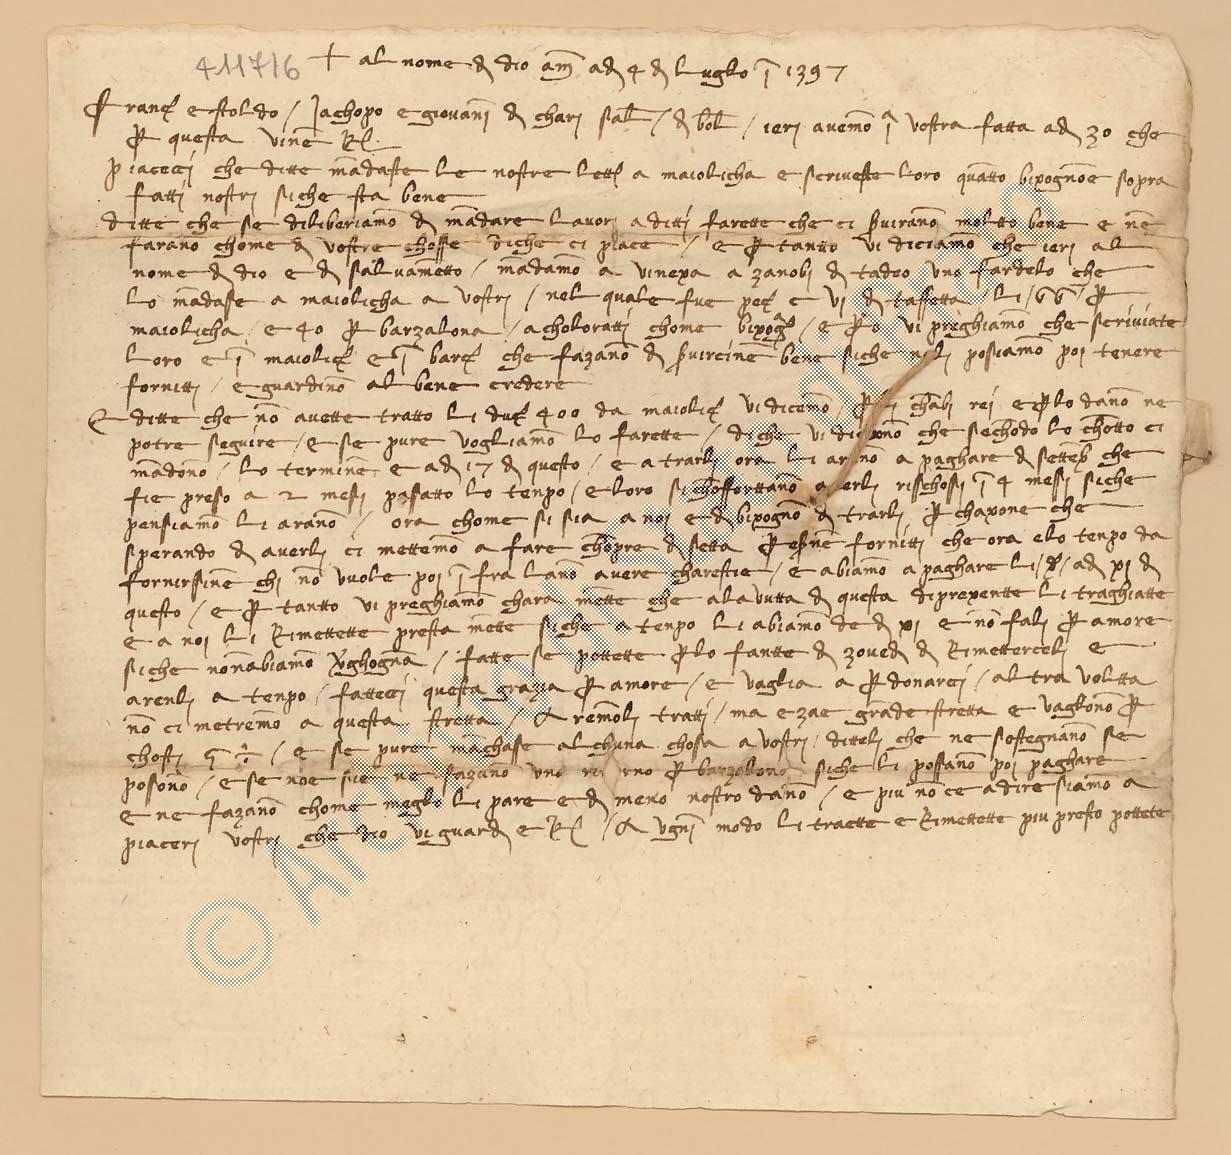 411716
+ al nome d dio am ad 4 d luglo j 1397
Franc e stoldo / Jachopo e giovani d chari sal / d bol / ieri avemo j vostra fatta ad 30 che
p questa vine
piacecci che ditte mandaste le nostre lett a maiolicha e scriveste loro quatto bixognoe sopra
fatti nostri siche sta bene
ditte che se diliberiamo d mandare lavori a ditti farette che ci svirano moltto bene e ne
farano chome d vostre chosse diche ci piace / e p tantto vi diciamo che ieri al
nome d dio e d salvametto / mandamo a vinexa a zanobi d tadeo uno fardelo che
lo mandasse a maiolicha a vostri / nel quale fue pec vi d taffetta / li p
maiolicha / e 40 p barzalona / acholoratti chome / e vi preghiamo che scriviate
loro e j maiolic e j barc che fazano d bene siche posiamo poi tenere
fornitti / e guardino al bene credere
E ditte che no avette tratto li duc 400 da maiolic vi dicemo rei e plo dano ne
potre seguire / e se pure vogliamo lo farette / diche vi che sechodo lo chotto ci
madono / lo termine e ad 17 d questo / e a trarli ora li arano a paghare d setteb che
fie preso a 2 mesi pasatto lo tenpo / e loro averli rischossi j 4 messi siche
pensiamo li arano / ora chome si sia a noi e d bixogno d trarli p chaxone che
sperando d averli ci mettemo a fare chopre d setta p fornitti che ora e lo tenpo da
fornirssine chi no vuole poi j fra lano avere charestie / e abiamo a paghare li / ad xj d
questo / e p tantto vi preghiamo chara mette che a la vutta d questa di prexentte li traghiatte
e a noi li Rimettette presta mette siche a tenpo li abiamo de d xj e no fali p amore
siche non abiamo vghogna / fatte se pottette plo fantte d zoved d Rimettercelli e
arenli a tenpo / fattecci questa grazia p amore / e vaglia a pdonarci / altra voltta
no ci metremo a questa stretta / A remoli tratti / ma e zae grade stretta e vaglono p
chosti / e se pure machasse alchuna chosa a vostri / ditteli che ne sostegnano se
posono / e se noe sie ne fazano uno p barzalona siche li possano poi paghare
e ne fazano chome meglo li pare e d meno nostro dano / e piu no ce a dire siamo a
piaceri vostri che dio vi guard e / A ugni modo li traette e Rimettette piu presto pottete
© Archivio di Stato di Prato